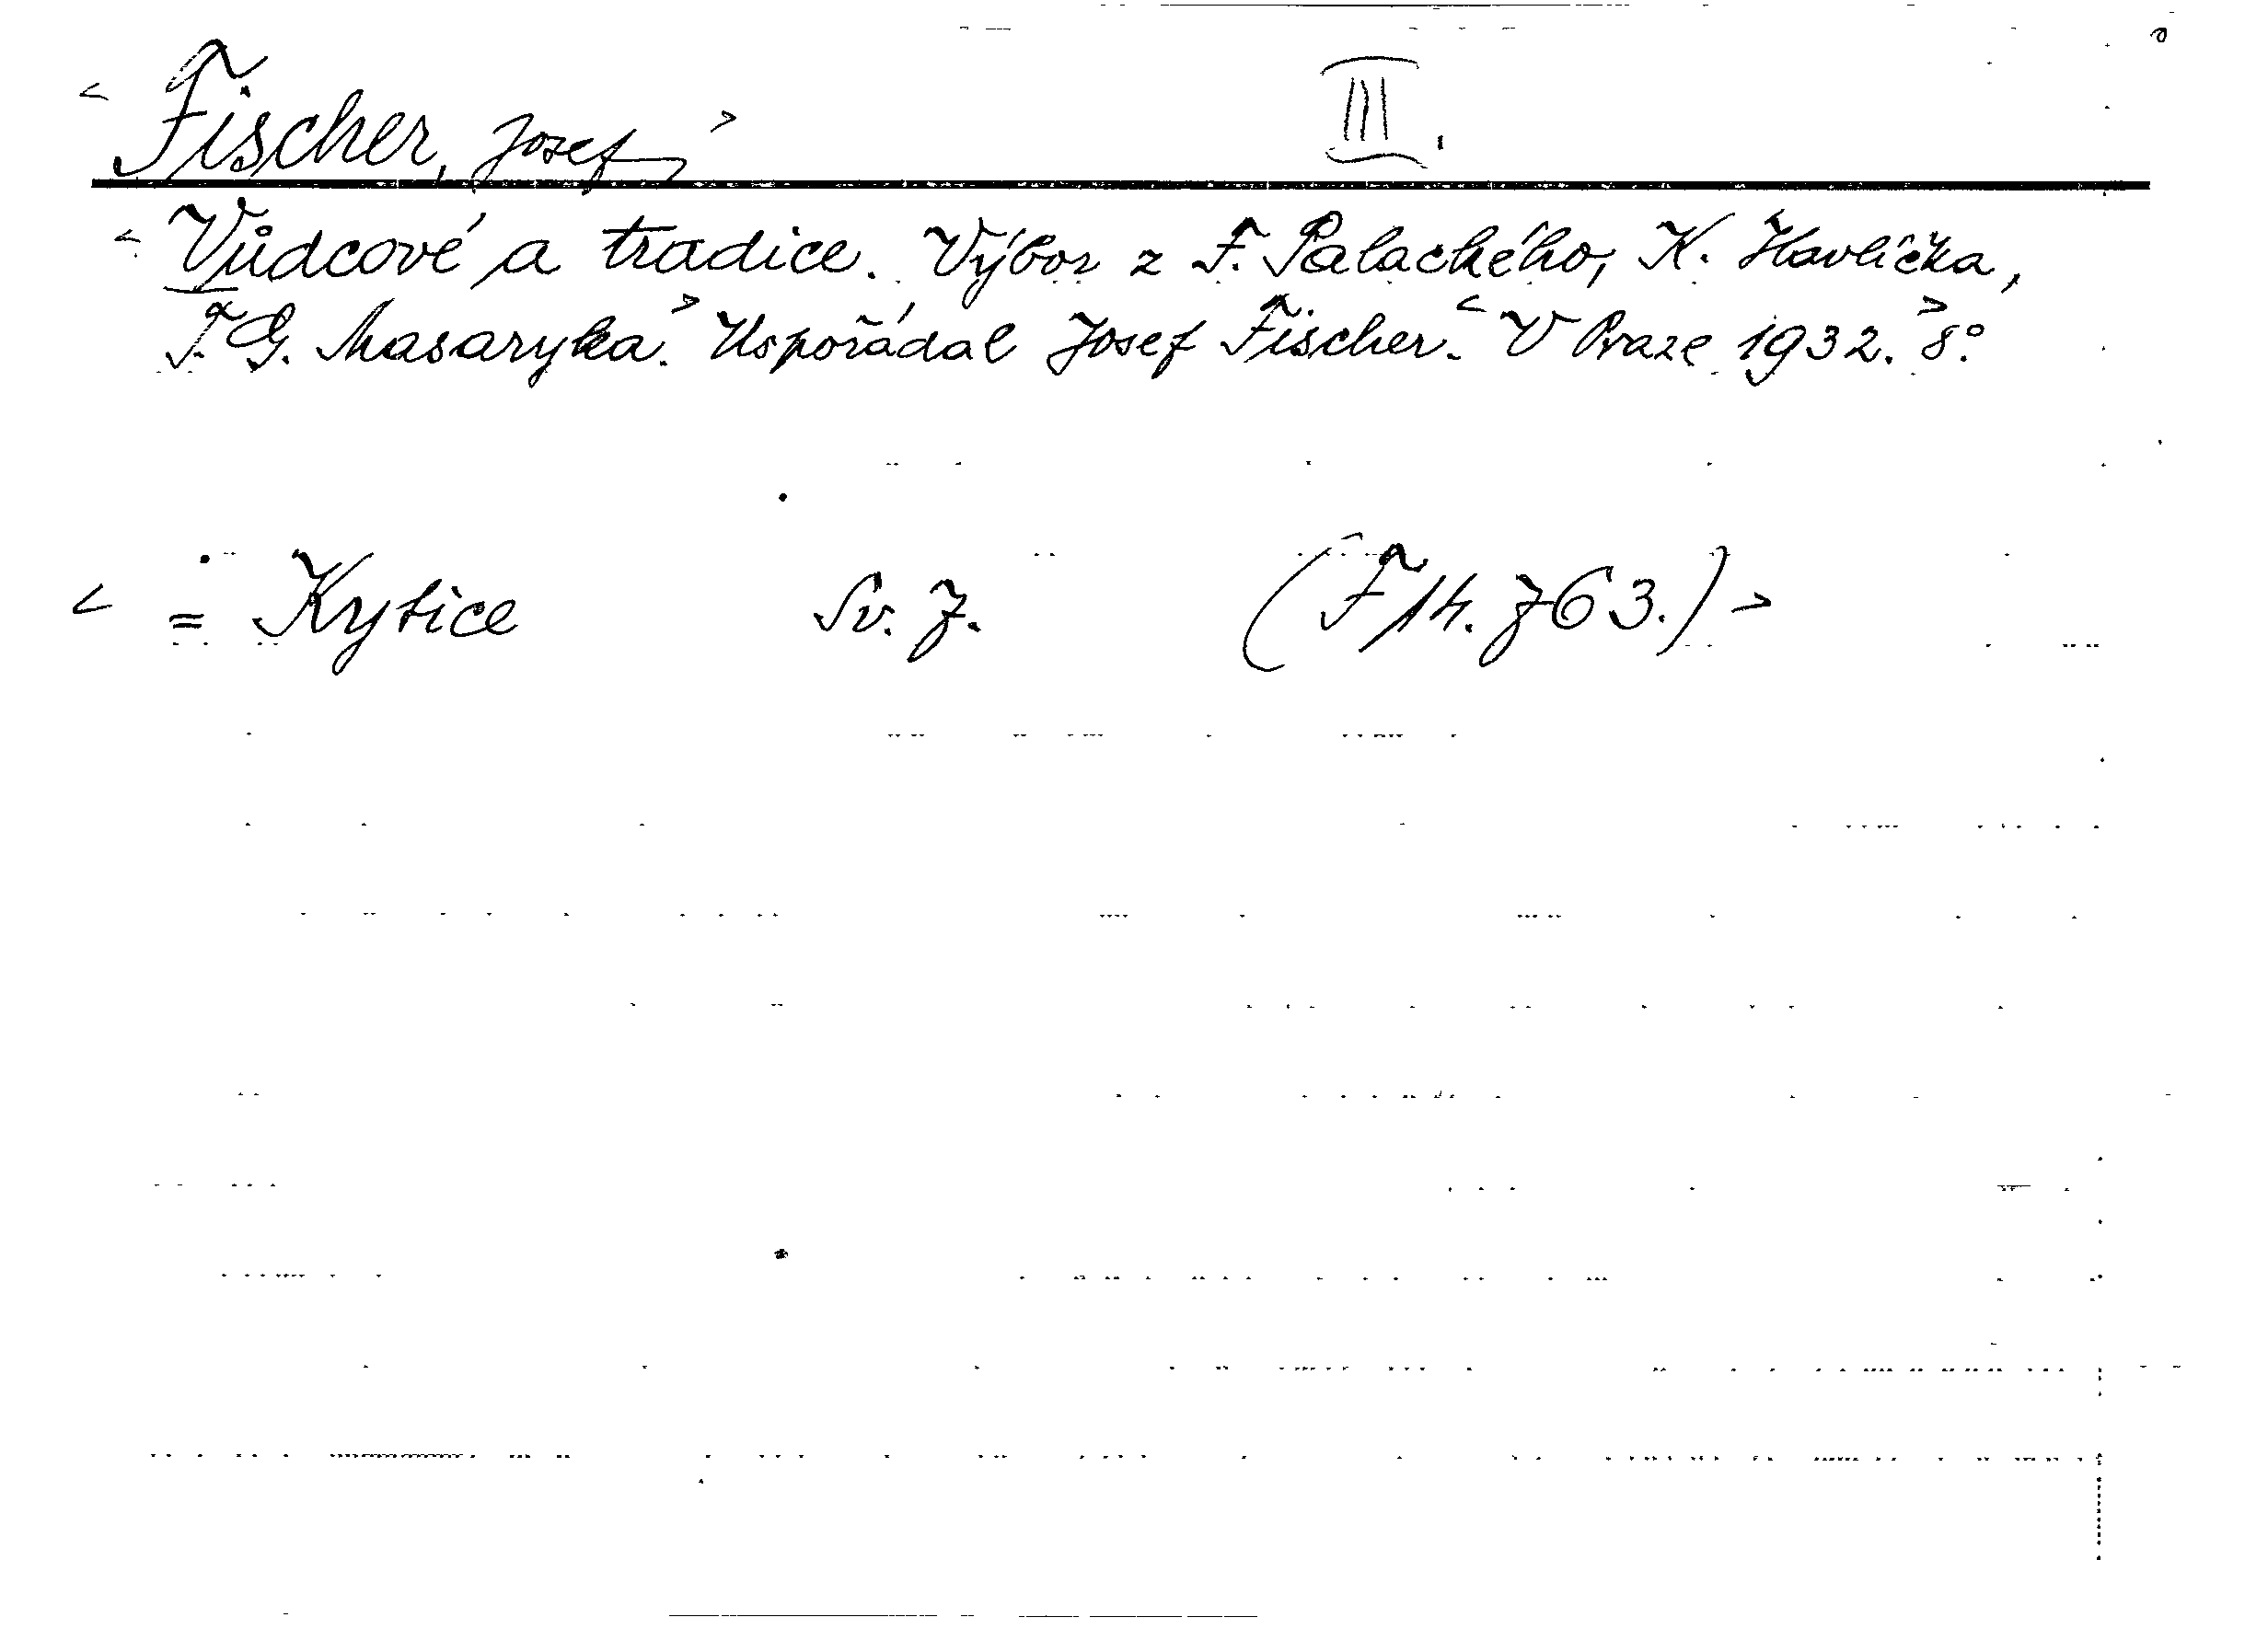 < Fischer, Josef > III.
< Vůdcové a tradice. Výbor z F. Palackého, K. Havlíčka,
T. G. Masaryka.> Uspořádal Josef Fischer.< V Praze 1932.> 8°.
< = Kytice Sv. 7. (F 14. 763.) >